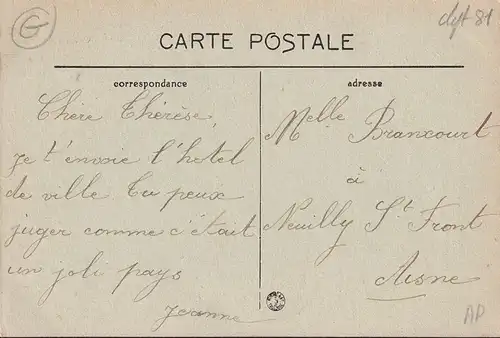 G
dyt 81
CARTE POSTALE
correspondance
Chère Thérèse,
je t'envoie l'hetel
de ville Tu peux
juger comme c'était
un joli pays
Jeanne
adresse
Melle Brancourt
à
Neuilly St Front
Aisne
AP